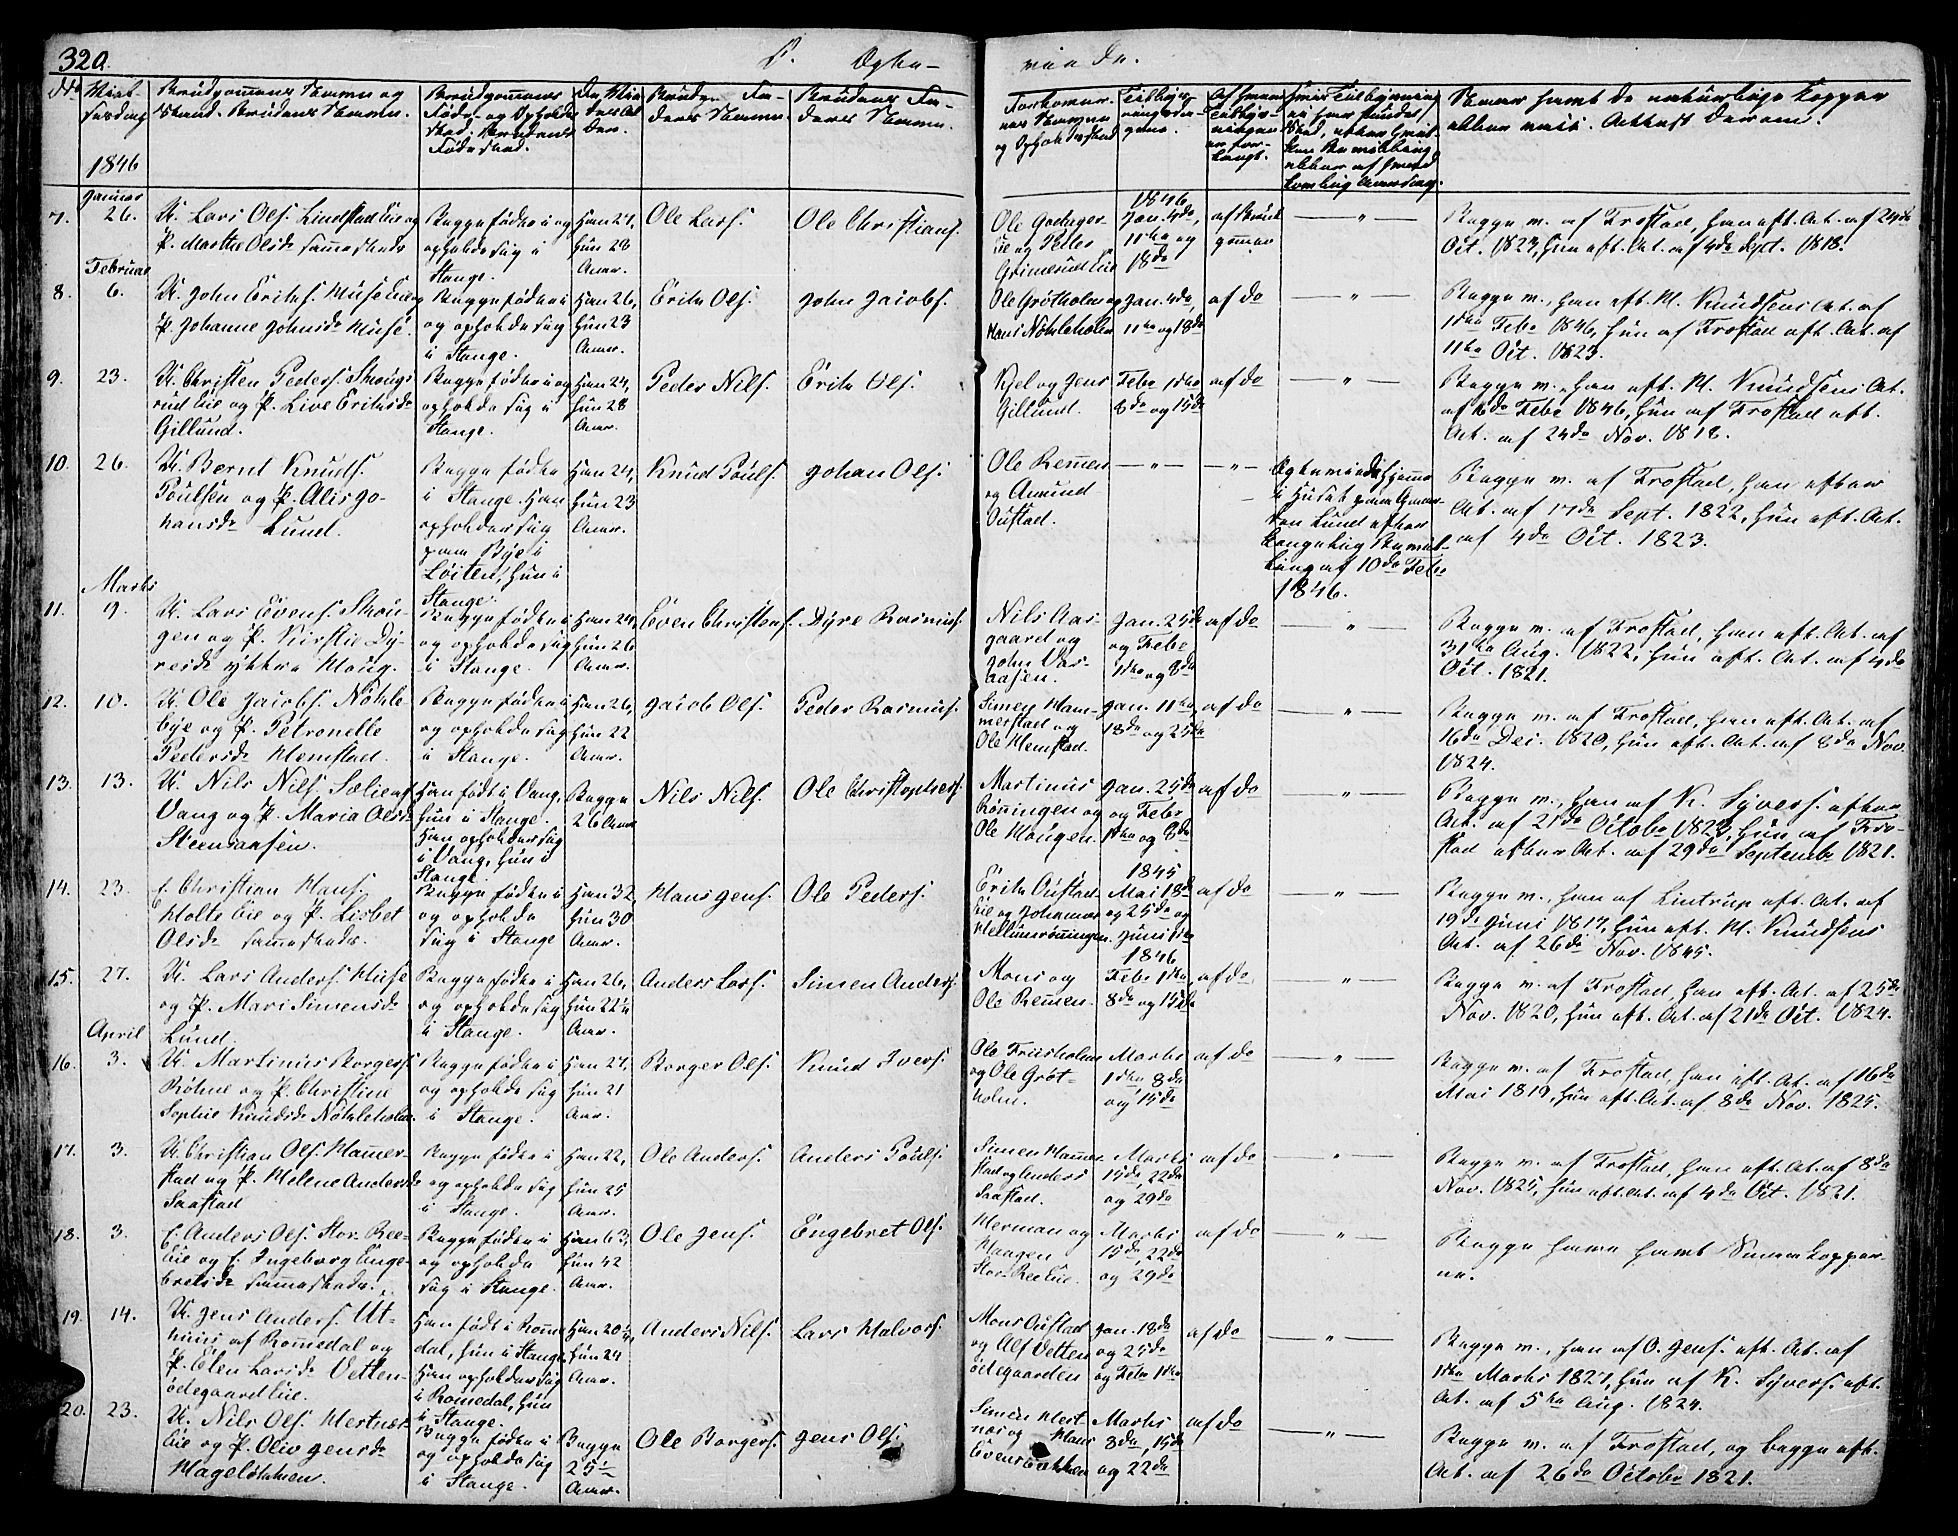 320.
F. Ægte- viede.
No Viel-
sesdag
1846
Brudgomens Navn og
Stand. Brudens Navn.
Brudgomens
Føde- og Opholds
Sted. Brudens
Fødested.
Brudg. Fa-
ders Navn.
Brudens Fa-
ders Navn.
Forlovernes
Navn
og Opholdssted
Tillys-
nings Da-
gene.
Af hvem
Tillys-
ningen
er for-
langt.
Naar havt de naturlige Kopper
eller vacc. Attest derom.
Januar
7. 26.
U. Lars Ols. Lindstad Eie og
P. Marthe Olsdr sammesteds
Begge fødte i og
opholde sig i
Stange.
Han 27,
hun 28
Aar.
Ole Lars.
Ole Christians.
Ole Godager
Eie og Peder
Grimerud Eie
1846
Jan. 4de,
11te og
18de
af Brud-
gomen
— " —
Begge v. af Frostad, han eft. Att. af 24de
Oct. 1823, hun eft. Att. af 4de Sept. 1818.
Februar
8. 6.
U. John Eriks. Huse Eie og
P. Johanne Johnsdr Huse.
Begge fødte i
og opholde sig
i Stange.
Han 26,
hun 23
Aar.
Erik Ols.
John Jacobs.
Ole Grøtholm og
Hans Nøhleholm
Jan. 4de
11te og 18de
af do
— " —
Begge v., han eft. M. Knudsens Att. af
1ste Febr 1846, hun af Frostad eft. Att. af
11te Oct. 1823.
9. 23.
U. Christen Peders. Skougs-
rud Eie og P. Live Eriksdr
Gillund.
Begge fødte i og
opholde sig i
Stange.
Han 24,
hun 28
Aar.
Peder Nils.
Erik Ols.
Kjel og Jens
Gillund.
Febr 1ste
8de og 15de
af do
— " —
Begge v., han eft. M. Knudsens Att.
af 6de Febr 1846, hun af Frostad eft.
Att. af 24de Nov. 1818.
10. 26.
U. Bernt Knuds.
Poulsen og P. Alis Jo-
hansdr Lund.
Begge fødte
i Stange. Han
opholder sig
paa Bye i
Løiten, hun i
Stange.
Han 24,
hun 23
Aar.
Knud Pouls.
Johan Ols.
Ole Remen
og Amund
Oustad.
— " — — " —
Ægteviede hjemme
i Huset paa Gaar-
den Lund efter
kongelig Bevil-
ling af 10de Febr
1846.
Begge v. af Frostad, han efter
Att. af 17de Sept. 1822, hun eft. Att.
af 4de Oct. 1823.
Marts
11. 9.
U. Lars Evens. Skou-
gen og P. Kirstie Dy-
resdr ytre Houg.
Begge fødte i
og opholde sig
i Stange.
Han 24,
hun 26
Aar.
Even Christens.
Dyre Rasmus.
Nils Aas-
gaard og
John Vas-
aasen.
Jan. 25de
og Febr
1ste og 8de
af do
— " —
Begge v. af Frostad, han eft. Att. af
31te Aug. 1822, hun eft. Att. af 4de
Oct. 1821.
12. 10.
U. Ole Jacobs. Nøhle-
bye og P. Petronelle
Pedersdr Hemstad.
Begge fødte i
og opholde sig
i Stange.
Han 26,
hun 22
Aar.
Jacob Ols.
Peder Rasmus.
Simen Ham-
merstad og
Ole Hemstad.
Jan. 11te
18de og 25de
af do
— " —
Begge v. af Frostad, han eft. Att. af
16de Dec. 1820, hun eft. Att. af 8de Nov.
1824.
13. 13.
U. Nils Nils. Sælie af
Vang og P. Maria Olsdr
Steensaasen.
Han født i Vang,
hun i Stange.
Han opholder sig
i Vang, hun i
Stange.
Begge
26 Aar
Nils Nils.
Ole Christophers.
Martinus
Rønningen og
Ole Haugen.
Jan. 25de
og Febr
1ste og 8de
af do
— " —
Begge v., han af K. Syvers. efter
Att. af 21de Octobr 1823, hun af Fro-
stad efter Att. af 29de Septembr 1821.
14. 23.
E. Christian Hans.
Holte Eie og P. Lisbet
Olsdr sammesteds.
Begge fødte i
og opholde
sig i Stange
Han 32,
hun 30
Aar.
Hans Jens.
Ole Peders.
Erik Oustad
Eie og Johannes
Hellumrønningen.
1845
Mai 18de
og 25de og
Juni 1ste
af do
— " —
Begge v., han af Lintrup eft. Att. af
19de Juni 1817, hun eft. M. Knudsens
Att. af 26de Nov. 1845.
15. 27.
U. Lars Anders. Huse
og P. Mari Simensdr
Lund.
Begge fødte i
og opholde sig
i Stange.
Han 26,
hun 22½
Aar.
Anders Lars.
Simen Anders.
Mons og
Ole Remen.
1846
Febr 1ste
8de og 15de
af do
— " —
Begge v. af Frostad, han eft. Att. af 25de
Nov. 1820, hun eft. Att. af 21de Oct. 1824.
April
16. 3.
U. Martinus Borgers.
Røhne og P. Christine
Sophie Knudsdr Nøhleholm
Begge fødte i
og opholde sig
i Stange.
Han 27,
hun 21
Aar.
Borger Ols.
Knud Ivers.
Ole Friisholm
og Ole Grøt-
holm.
Marts
1ste 8de
og 15de
af do
— " —
Begge v. af Frostad, han eft. Att. af 16de
Mai 1819, hun eft. Att. af 8de Nov. 1825.
17. 3.
U. Christian Ols. Hamer-
stad og P. Helene Andersdr
Saastad
Begge fødte i
og opholde sig
i Stange.
Han 22,
hun 25
Aar.
Ole Anders.
Anders Pouls.
Simen Hamer-
stad og Anders
Saastad.
Marts
15de, 22de
og 29de
af do
— " —
Begge v. af Frostad, han eft. Att. af 8de
Nov. 1825, hun eft. Att. af 4de Oct. 1821.
18. 3.
E. Anders Ols. Stor-Ree-
Eie og E. Ingeborg Enge-
bretsdr sammesteds.
Begge fødte i
og opholde
sig i Stange.
Han 63,
hun 42
Aar.
Ole Jens.
Engebret Ols.
Herman og
Haagen
Stor-Ree Eie.
Marts
15de, 22de
og 29de
af do
— " —
Begge have havt Vannkopper-
ne.
19. 14.
U. Jens Anders. Ut-
huus af Romedal og
P. Elen Larsdr Vetten-
ødegaard Eie.
Han født i Rome-
dal, hun i Stange
Han opholder sig
i Romedal, hun
i Stange.
Han 20¼,
hun 24
Aar.
Anders Nils.
Lars Halvors.
Mons Oustad
og Alf Vetten-
ødegaarden
Jan. 18de
og 25de
og Febr 1ste
af do
— " —
Begge v., han af O. Jens. eft. Att. af
1ste Marts 1827, hun af K. Syvers. eft.
Att. af 5te Aug. 1824.
20. 23.
U. Nils Ols. Hertnæs-
Eie og P. Oliv Jensdr
Hageløkken.
Begge fødte i
og opholde sig
i Stange.
Begge
25½
Aar.
Ole Borgers.
Jens Ols.
Simen Hert-
næs og Hans
Evensbakken
Marts
8de, 15de
og 22de
af do
— " —
Begge v. af Frostad, og begge eft.
Att. af 26de Octobr 1821.